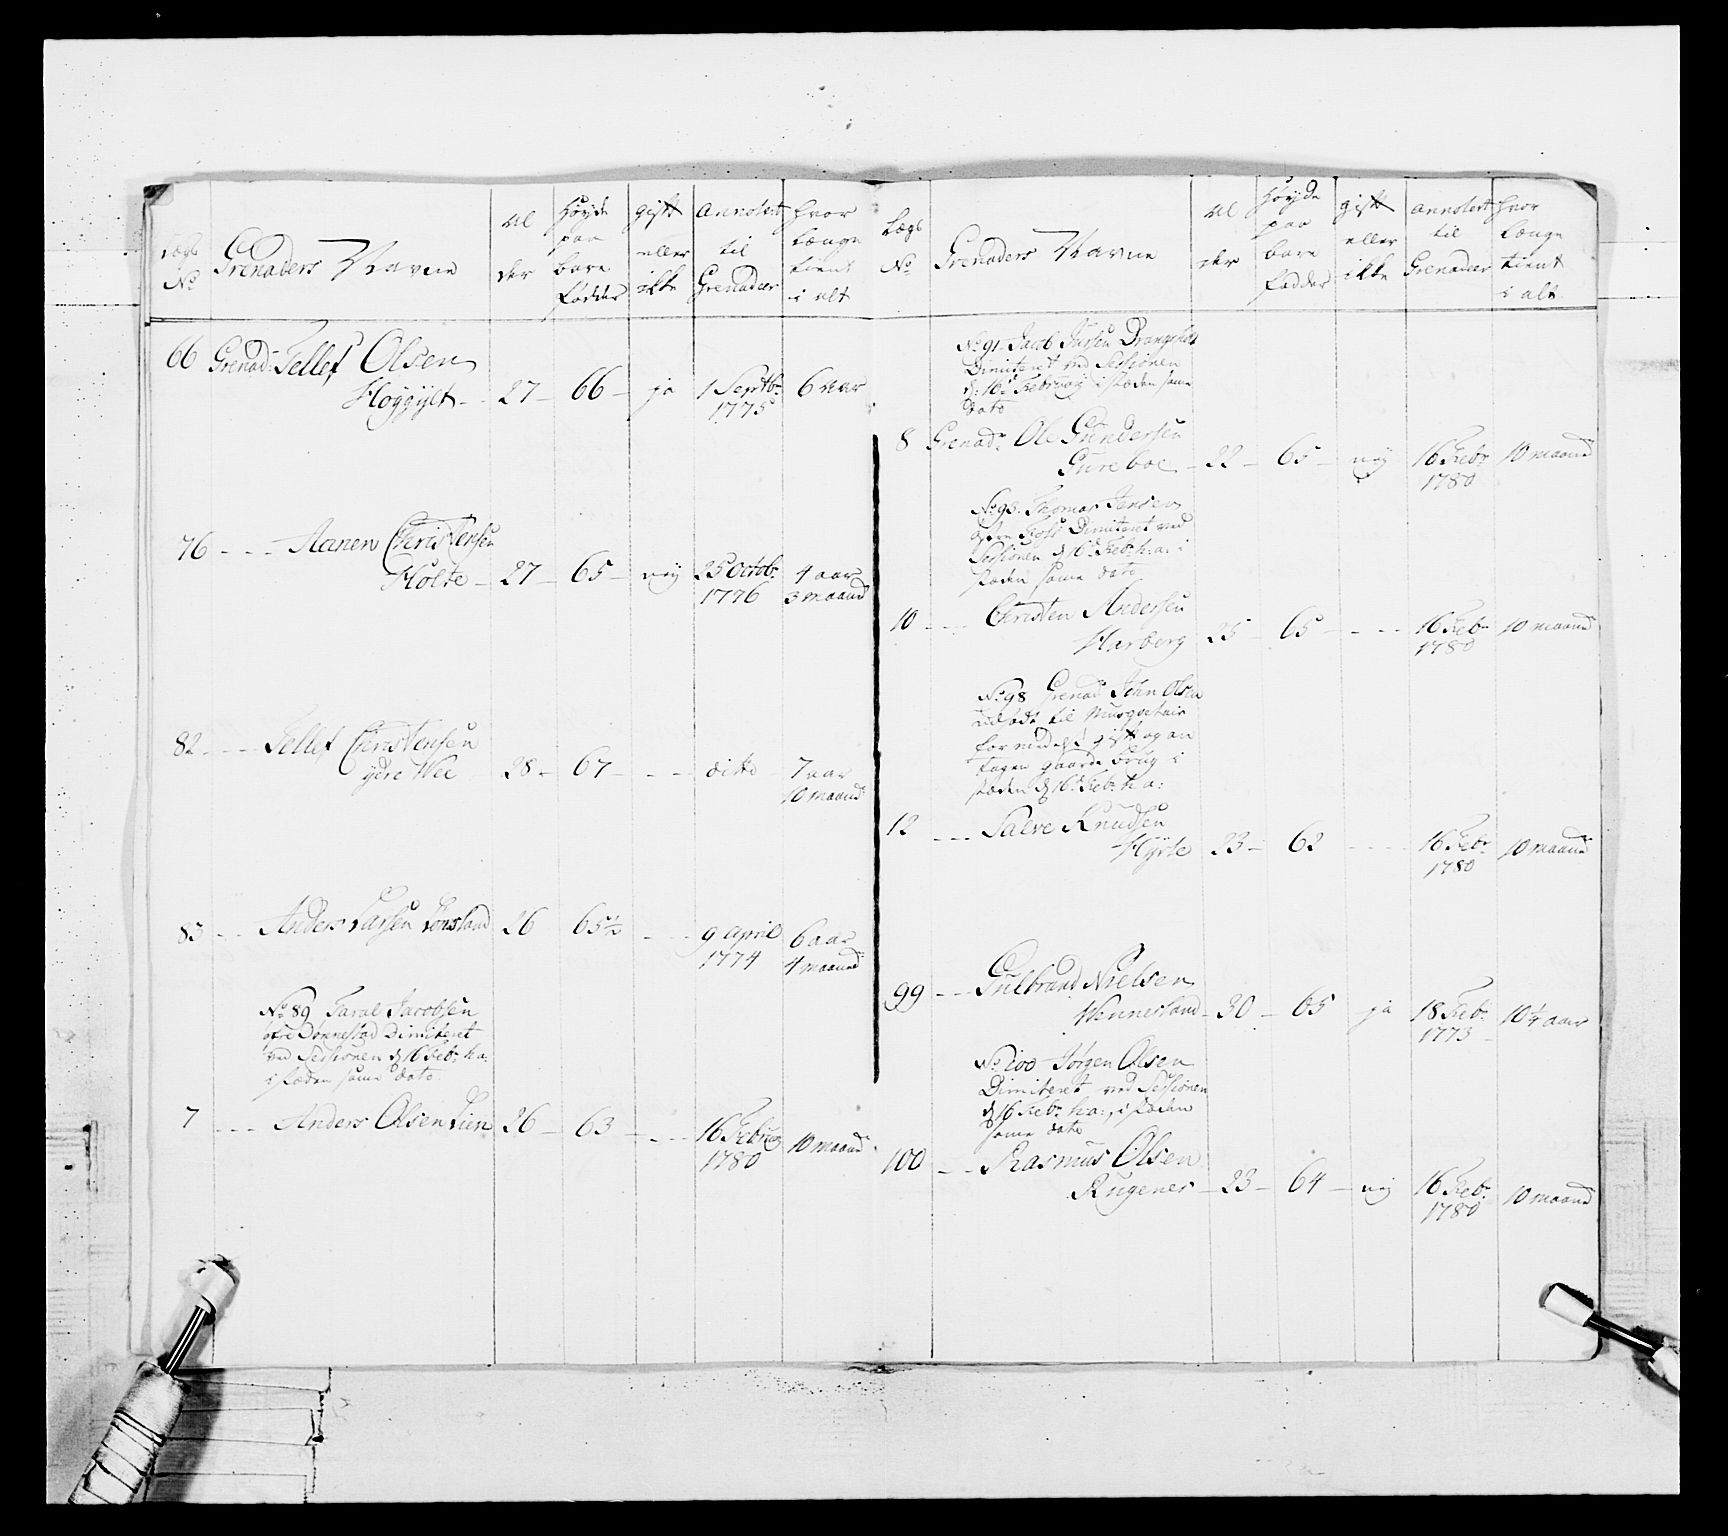 Lægs
No
Grenaders Navne
Al
der
Høyde
paa
bare
fødder
gift
eller
ikke
annotert
til
Grenadeer
hvor
længe
tient
i alt
66 Grenad: Tellef Olsen
Høygylt - 27 - 66 - ja 1 Septbr 6 aar
1775
76 - - - Aanen Christensen
Holte - 27 - 65 - neÿ 25 Octobr 4 aar
1776 3 maand
82 - - - Tellef Christensen
ydre Wee - 28 - 67 - - - ditto - 7 aar
10 maand
83 - - Anders Larsen 26 65½ - - 9 april 6 aar
1774 4 maand
No 89 Taral Jacobsen
øfre Dønnestad Dimitert
ved Sessionen d 16 Febr: h: a:
i stæden same dato
7 - - - Anders Olsen Lien 26 - 63 - - - 16 Februarÿ 10 maand
1780
Lægs
No
Grenaders Navne
Al
der
Høyde
paa
bare
fødder
gift
eller
ikke
annotert
til
Grenadeer
hvor
længe
tient
i alt
No 91 Jacob
Dimiteret ved Sessionen
d: 16 Februarÿ i stæden same
dato
8 Grenadr Ole Gundersen
Gureboe - 22 - 65 - neÿ 16 Febr 10 maand
1780
No 93. Thomas Jensen
Dimiteret ved
Sessionen d 16 Febr: h: a: i
stæden same dato
10 - - - Christen Andersen
Harberg 25 - 65 - - - - 16 Febr 10 maand
1780
No 98 Grenad John Olsen
udsadt til Musqvetair
formedelst gift og an
tagen gaards brug i
stæden d 16 Febr: h: a:
12 - - - Salve Knudsen
23 - 62 - - - - 16 Febr 10 maand
1780
99 - - - Gulbrand Nielsen
Wennesland - 30 - 65 - ja 18 Febr 10¼ aar
1773
No 100 - Jørgen Olsen
Dimiteret ved Sessionen
d 16 Febr: h: a:, i stæden
same dato
100 - - - Rasmus Olsen
Rugenes - 23 - 64 - neÿ 16 Febr 10 maand
1780